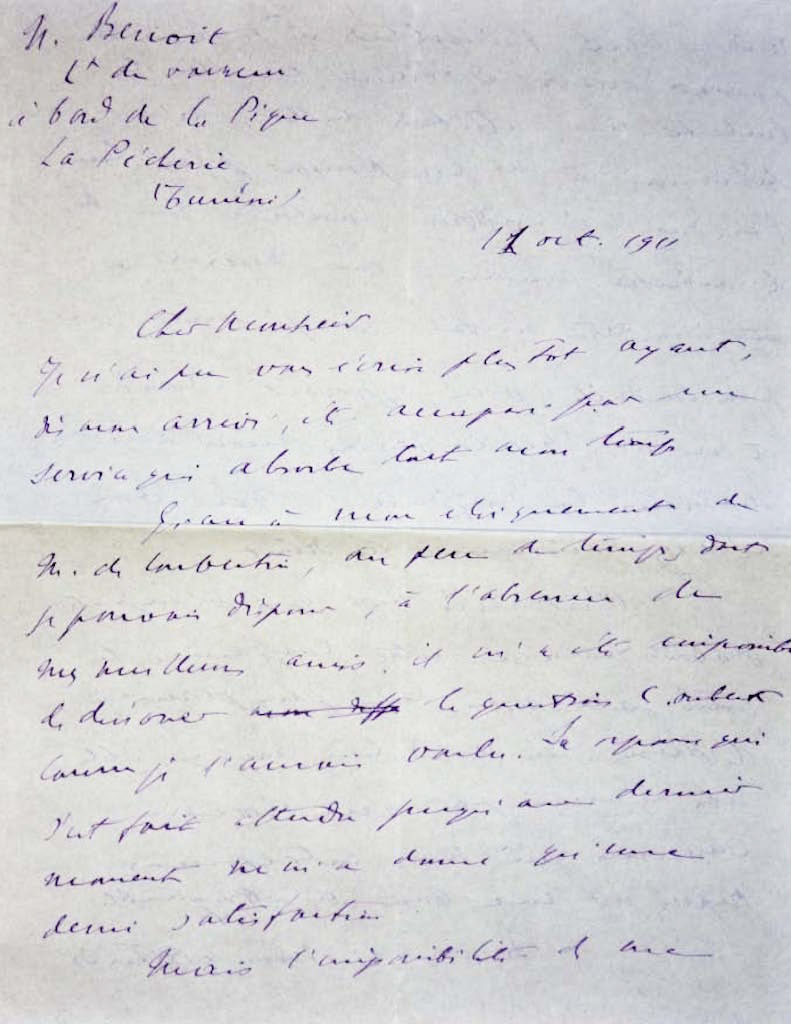 N. Benoit
Lt de vaisseau
à bord de la Pique
La Pêcherie
(Tunisie)
11 oct. 1911
Cher Monsieur
Je n'ai pu vous écrire plus tôt ayant,
dès mon arrivée, été accaparé par un
service qui absorbe tout mon temps
Grâce à mon éloignement de
M. de Coubertin, au peu de temps dont
je pouvais disposer, à l'absence de
mes meilleurs amis, il m'a été impossible
de la question
comme je l'aurais voulu. La réponse qui
s'est fait attendre jusqu'au dernier
moment ne m'a donné qu'une
demi satisfaction
Mais l'impossibilité de me